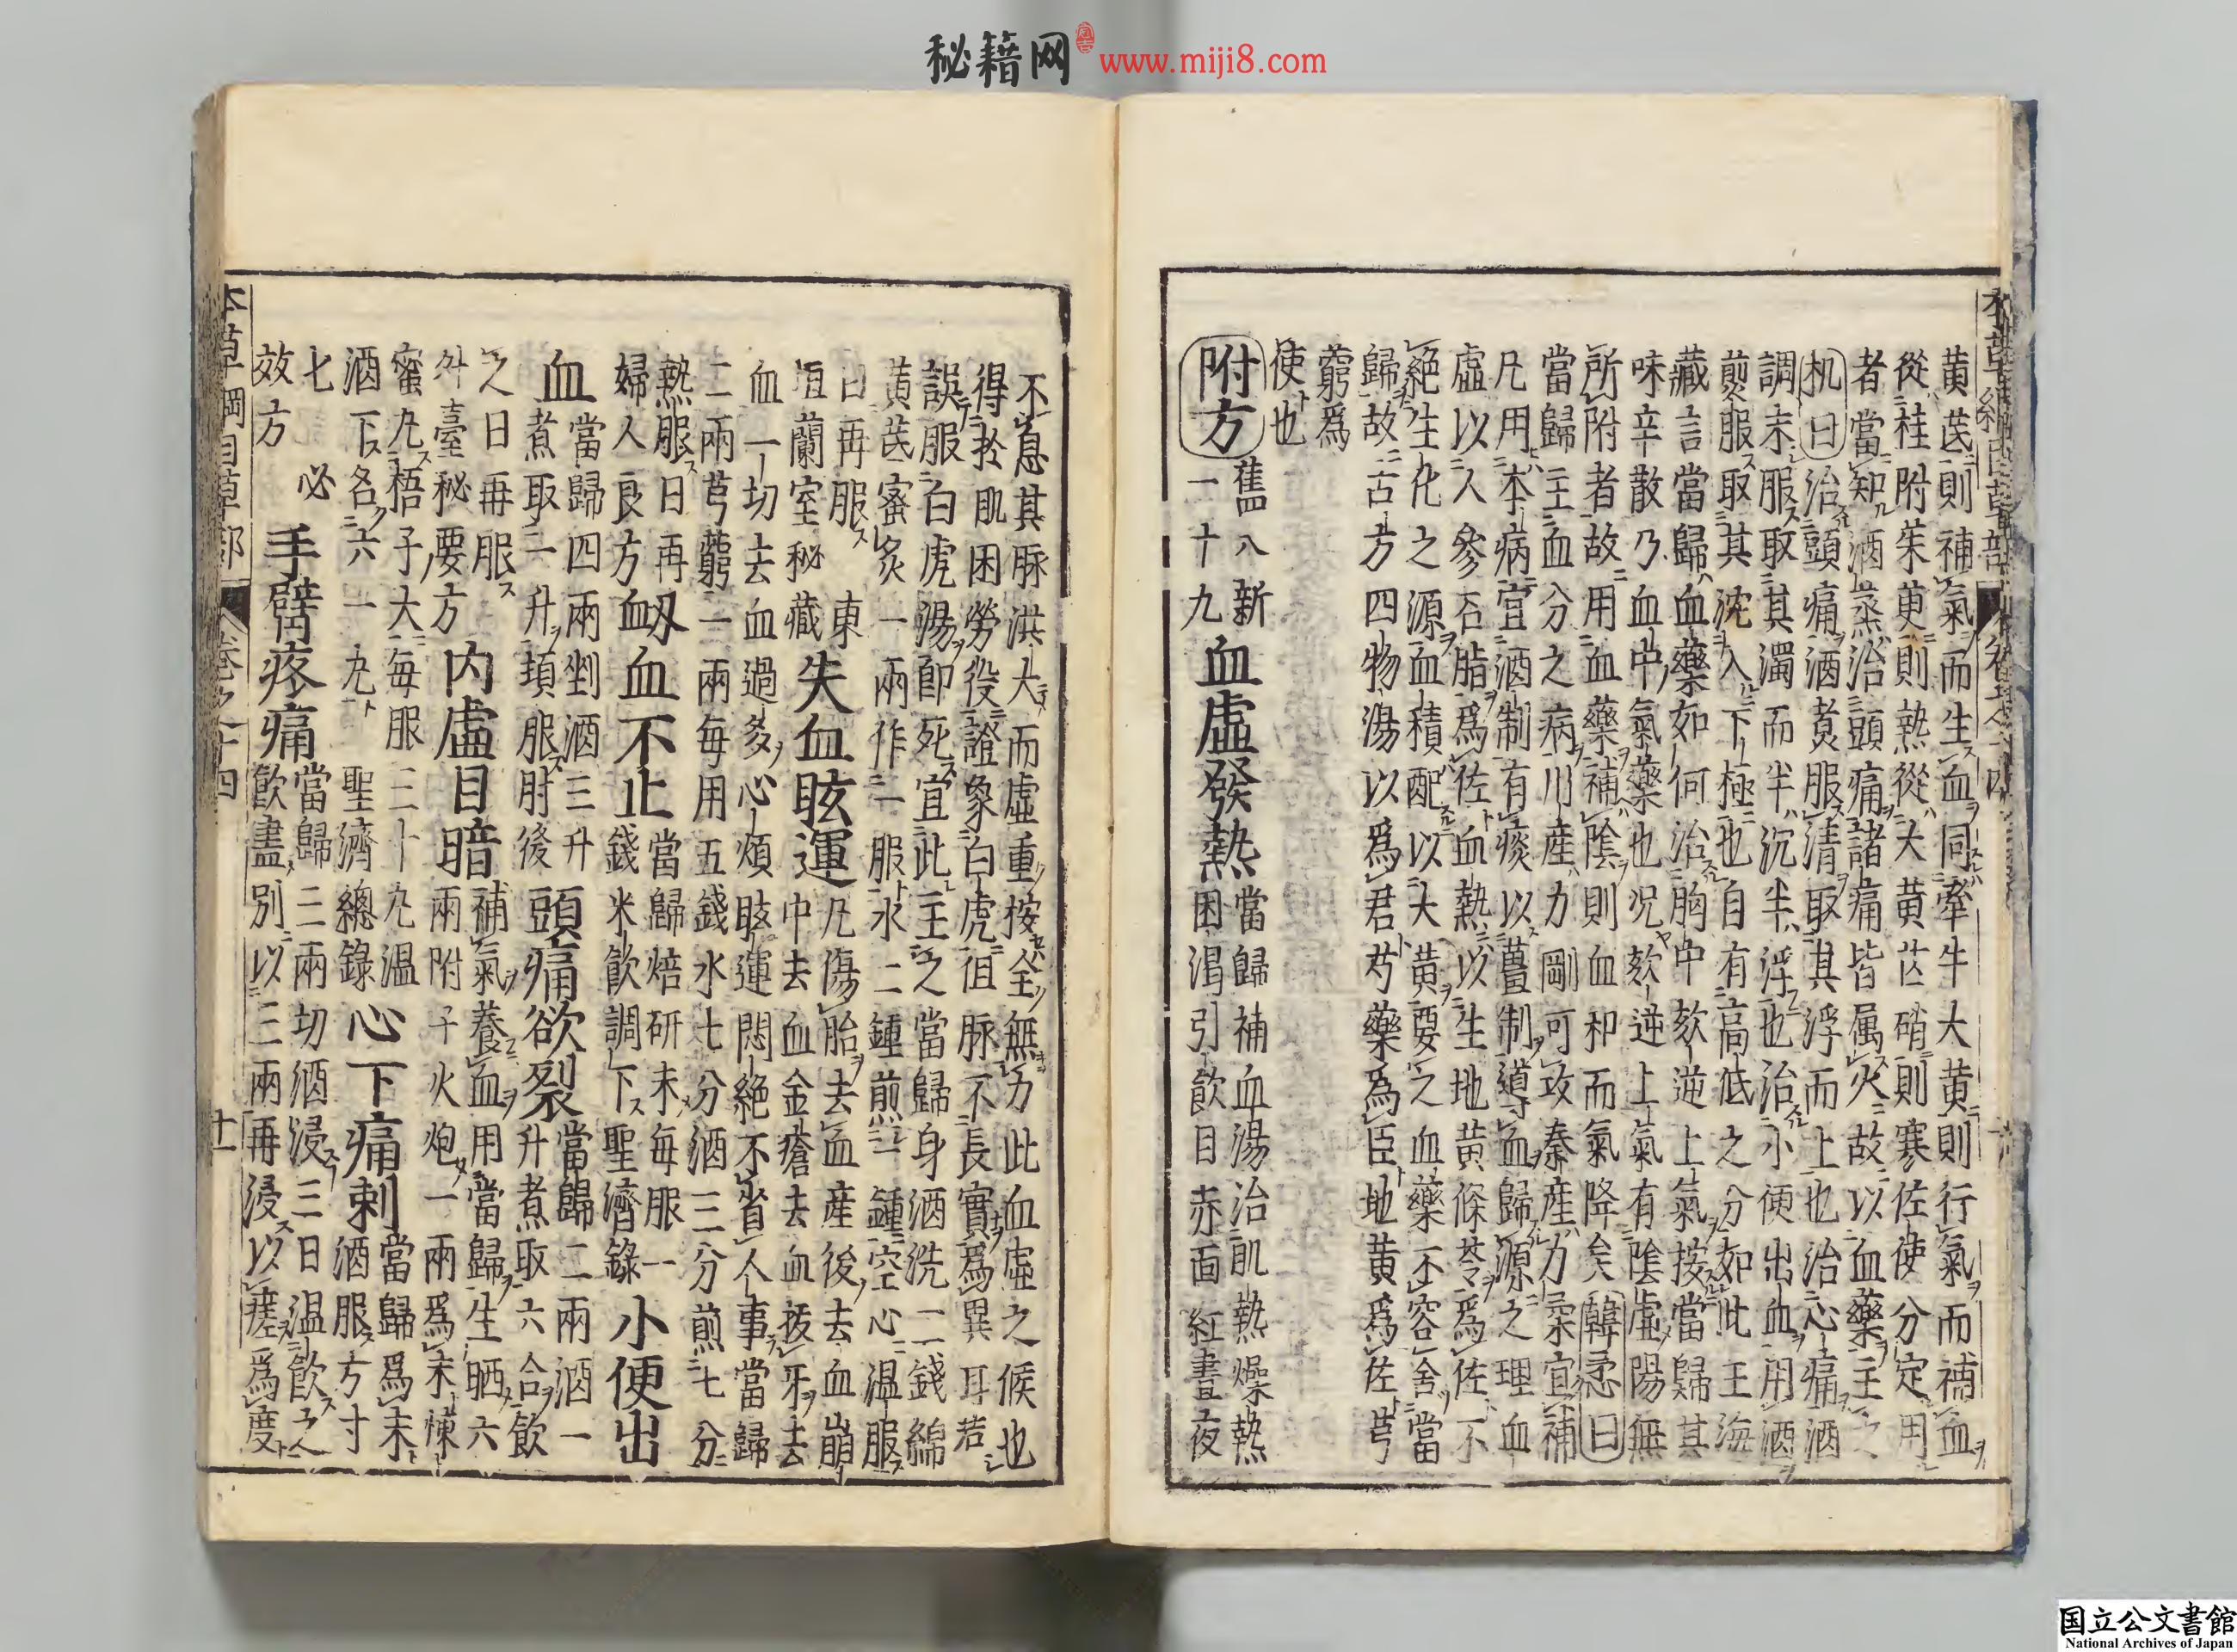 秘籍网 www.miji8.com
黄芪則補氣而生血同牽牛大黄則行氣而補血
從桂附茱萸則熱從大黄芒硝則寒佐使分定用
者當知酒蒸治頭痛諸痛皆属火故以血藥主之
机曰治頭痛酒煑服清取其浮而上也治心痛酒
調末服取其濁而半沉半浮也治小便出血用酒
煎服取其沈入下極也自有高低之分如此王海
藏言當歸血藥如何治胸中欬逆上氣按當歸其
味辛散乃血中氣藥也况欬逆上氣有陰虛陽無
所附者故用血藥補陰則血和而氣降矣韓𢘅曰
當歸主血分之病川産力剛可攻秦産力柔宜補
凡用本病宜酒制有痰以薑制導血歸源之理血
虛以人參石脂爲佐血熱以生地黄條芩爲佐不
絶生化之源血積配以大黄要之血藥不容舍當
歸故古方四物湯以爲君芍藥爲臣地黄爲佐芎
藭爲
使也
附方 舊八新一十九 血虛發熱 當歸補血湯治肌熱燥熱困渴引飲目赤面紅晝夜
不息其脉洪大而虛重按全無力此血虛之候也
得於肌困勞役證象白虎徂脉不長實爲異耳若
誤服白虎湯即死宜此主之當歸身酒洗二錢綿
黄芪蜜炙一兩作一服水二鍾煎一鍾空心温服
日再服 東垣蘭室秘藏 失血眩運 凡傷胎去血産後去血崩中去血金瘡去血拔牙去
血一切去血過多心煩眩運悶絶不省人事當歸
二兩芎藭一兩每用五錢水七分酒三分煎七分
熱服日再 婦人良方 衂血不止 當歸焙研末每服一錢米飲調下 聖濟錄 小便出
血 當歸四兩剉酒三升煮取一升頓服 肘後 頭痛欲裂 當歸二兩酒一升煮取六合飲
之日再服 外臺秘要方 内虛目暗 補氣養血用當歸生晒六兩附子火炮一兩爲末煉
蜜丸梧子大每服三十丸温酒下名六一丸 聖濟總錄 心下痛刺 當歸爲末酒服方寸
七 必效方 手臂疼痛 當歸三兩切酒浸三日温飲之飲盡別以三兩再浸以瘥爲度
本草綱目草部 卷之十四 十一
国立公文書館
National Archives of Japan